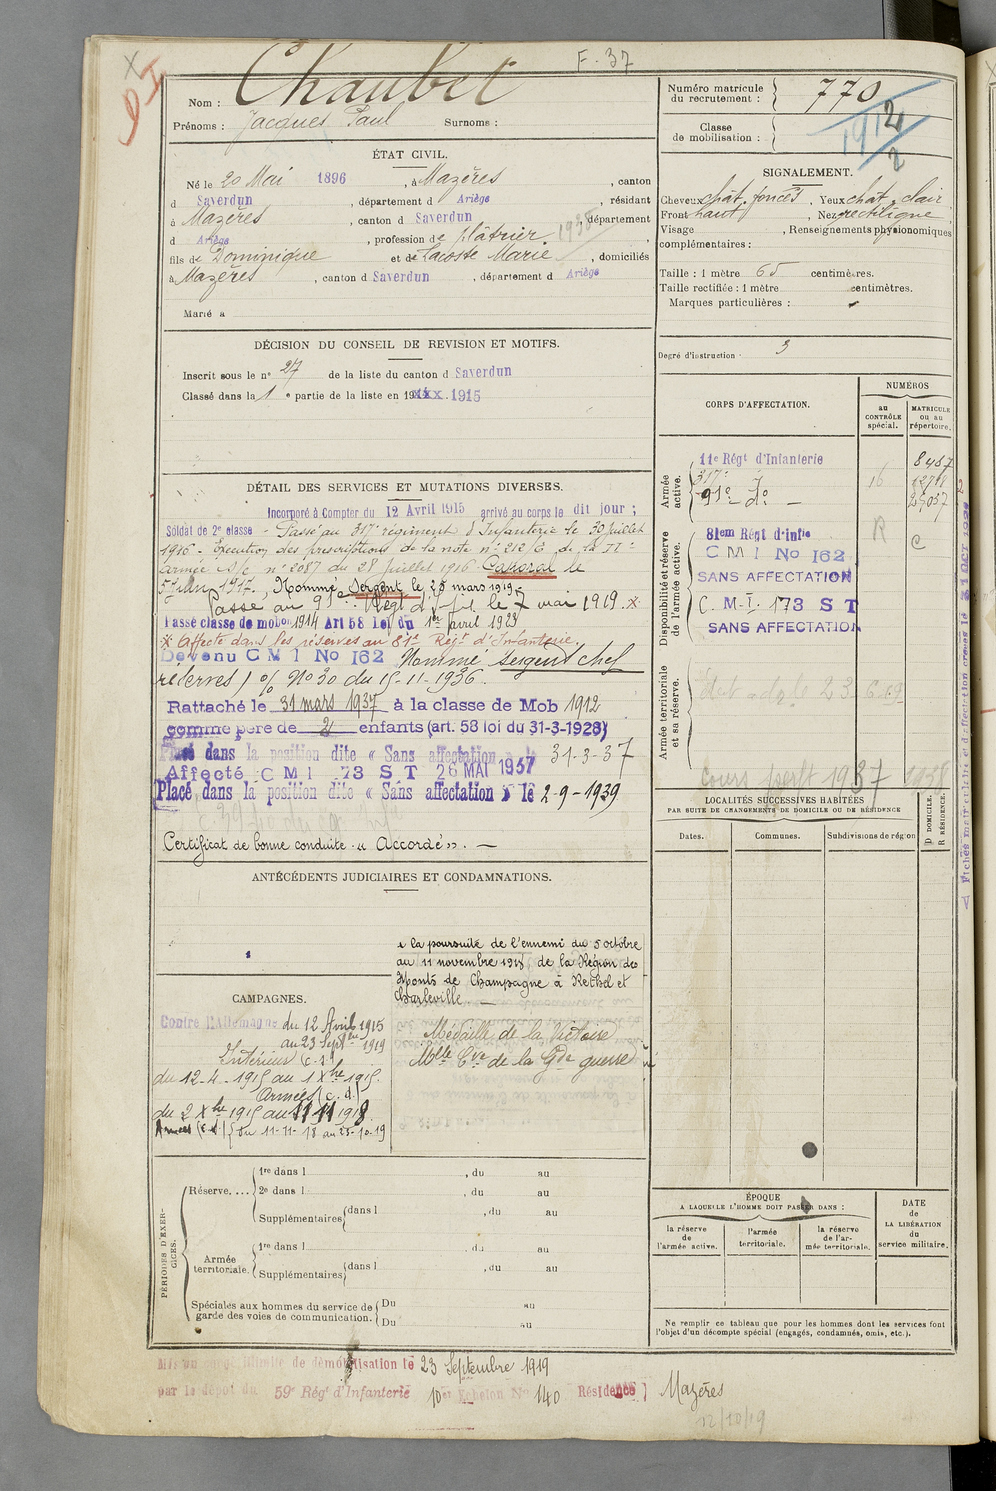 F. 37
Nom : Chaubet
Prénoms : Jacques Paul Surnoms :
ÉTAT CIVIL.
Né le 20 Mai 1896 , à Mazères , canton
d Saverdun , département d Ariège , résidant
à Mazères , canton d Saverdun , département
d Ariège , profession de plâtrier.
fils de Dominique et de Lacoste Marie , domiciliés
à Mazères , canton d Saverdun , département d Ariège
Marié à
DÉCISION DU CONSEIL DE REVISION ET MOTIFS.
Inscrit sous le n° 27 de la liste du canton d Saverdun
Classé dans la 1e partie de la liste en 1915
DÉTAIL DES SERVICES ET MUTATIONS DIVERSES.
Incorporé à Compter du 12 Avril 1915 arrivé au corps le dit jour ;
Soldat de 2e classe - Passé au 317e régiment d'Infanterie le 30 juillet
1916 - Exécution des prescriptions de la note n° 212/6 de la IIe
armée N/c n° 2087 du 28 Juillet 1916. Caporal le
5 Juin 1917. Nommé Sergent le 25 mars 1919.
Passé au 91e Régt d'Inf. le 7 mai 1919. *
Passé classe de mob on 1914 Art 58 Loi du 1er avril 1923
* Affecté dans les réserves au 81e Régt d'Infanterie.
Devenu C M I No 162 Nommé Sergent chef
réserves) % No 30 du 15-11-1936.
Rattaché le 31 mars 1937 à la classe de Mob 1912
comme père de 2 enfants (art. 58 loi du 31-3-1928)
Placé dans la position dite « Sans affectation » le 31-3-37
Affecté C M I 173 S T 26 MAI 1937
Placé dans la position dite « Sans affectation » le 2-9-1939
Certificat de bonne conduite « Accordé ». —
ANTÉCÉDENTS JUDICIAIRES ET CONDAMNATIONS.
à la poursuite de l'ennemi du 5 octobre
au 11 novembre 1918 de la Région des
Monts de Champagne à Rethel et
Charleville —
Médaille de la Victoire
Mlle Cve de la Gde guerre
CAMPAGNES.
Contre l'Allemagne du 12 Avril 1915
au 23 Septbre 1919
Intérieur (c.s.)
du 12-4-1915 au 1 Xbre 1915.
Armées (c.d.)
du 2 Xbre 1915 au 11 11 1918.
Armées (c.s.) { Du 11-11-18 au 23-10-19
PÉRIODES D'EXERCICES.
Réserve. ...
1re dans l , du au
2e dans l , du au
Supplémentaires { dans l , du au
Armée territoriale.
1re dans l , du au
Supplémentaires { dans l , du au
Spéciales aux hommes du service de garde des voies de communication.
Du au
Du au
Numéro matricule du recrutement : 770
Classe de mobilisation : 1912
2
SIGNALEMENT.
Cheveux chât. foncés , Yeux chât. clair
Front haut , Nez rectiligne
Visage , Renseignements physionomiques
complémentaires :
Taille : 1 mètre 65 centimètres.
Taille rectifiée : 1 mètre centimètres.
Marques particulières :
Degré d'instruction : 3
CORPS D'AFFECTATION.
NUMÉROS
au CONTRÔLE spécial.
MATRICULE ou au répertoire.
Armée active.
11e Régt d'Infanterie 8467
317e d° 16
91e — d° —
Disponibilité et réserve de l'armée active.
81em Régt d'infie
C M I No 162
SANS AFFECTATION
C. M. I. 173 S T
SANS AFFECTATION
R
C
Armée territoriale et sa réserve.
Cours perft 1937 1938
LOCALITÉS SUCCESSIVES HABITÉES
PAR SUITE DE CHANGEMENTS DE DOMICILE OU DE RÉSIDENCE
Dates. Communes. Subdivisions de région
D DOMICILE. R RÉSIDENCE.
ÉPOQUE
A LAQUELLE L'HOMME DOIT PASSER DANS :
la réserve de l'armée active.
l'armée territoriale.
la réserve de l'armée territoriale.
DATE de LA LIBÉRATION du service militaire.
Ne remplir ce tableau que pour les hommes dont les services font
l'objet d'un décompte spécial (engagés, condamnés, omis, etc.).
Mis en congé illimité de démobilisation le 23 Septembre 1919
par le dépôt du 59e Régt d'Infanterie 10e Echelon No 140 Résidence } Mazères
12/10/19